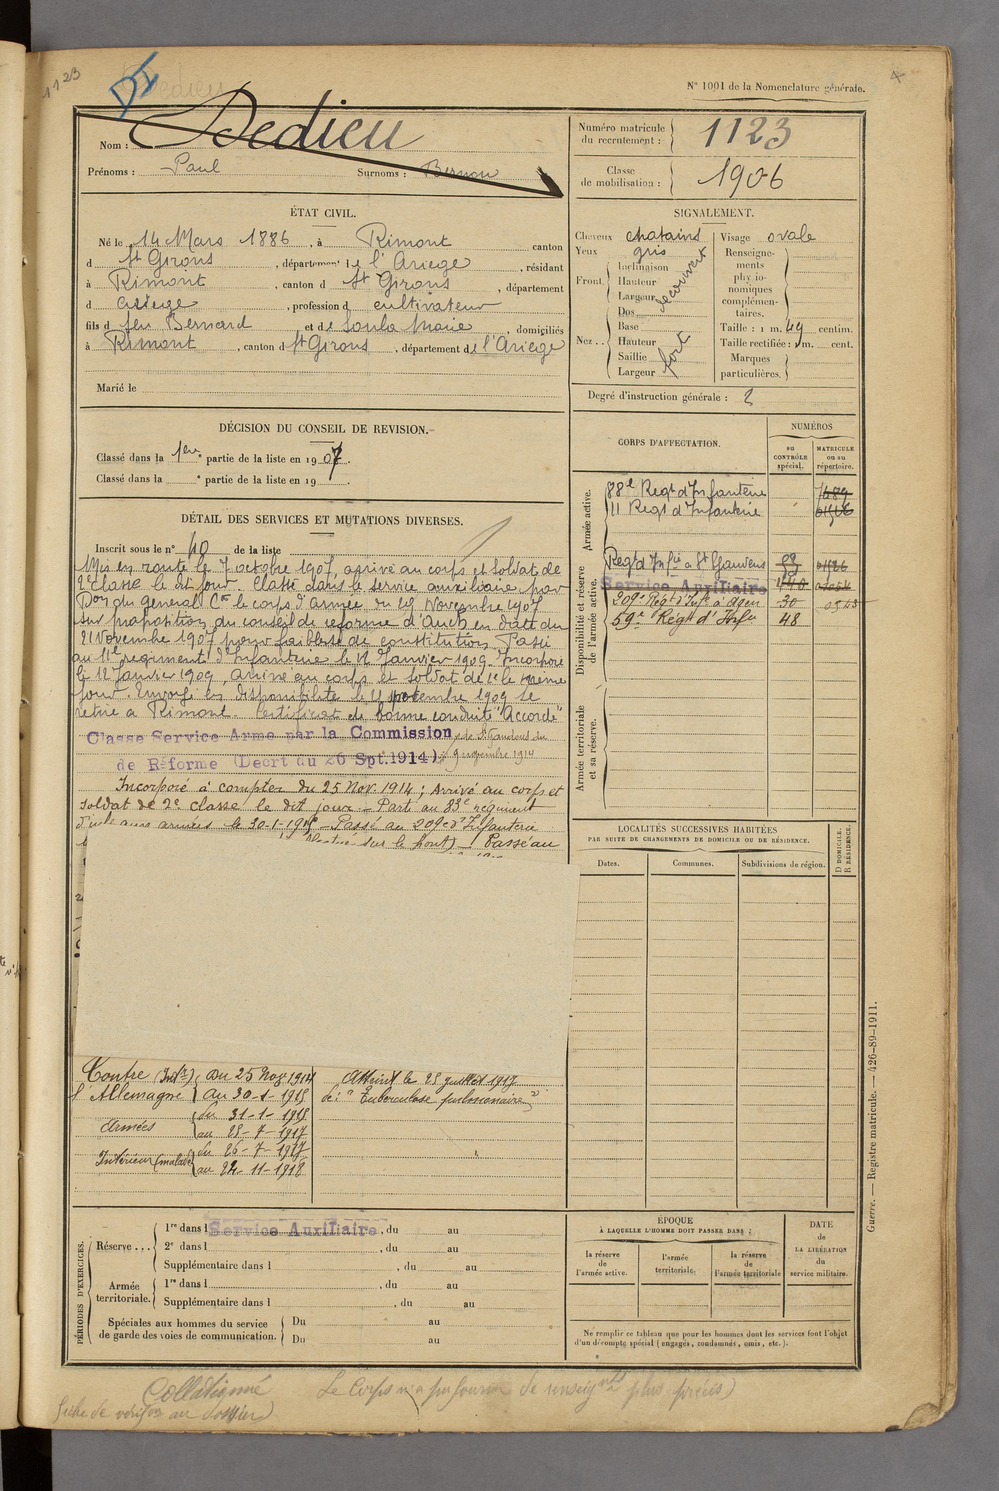 1123
N° 1001 de la Nomenclature générale.
Nom : Dedieu
Prénoms : Paul Surnoms : Bernou
Numéro matricule du recrutement : 1123
Classe de mobilisation : 1906
ÉTAT CIVIL.
Né le 14 Mars 1886, à Rimont canton
d St Girons, département de l'Ariege, résidant
à Rimont, canton d St Girons, département
d Ariège, profession d cultivateur
fils d feu Bernard, et de Soula Marie, domiciliés
à Rimont, canton d St Girons, département de l'Ariege
Marié le
SIGNALEMENT.
Cheveux chatains
Yeux gris
Front Inclinaison
Hauteur
Largeur
découvert
Nez.. Dos
Base
Hauteur
Saillie
Largeur
fort
Visage ovale
Renseignements physionomiques complémentaires.
Taille : 1 m. 49 centim.
Taille rectifiée : m. cent.
Marques particulières.
Degré d'instruction générale : 2
DÉCISION DU CONSEIL DE REVISION.
Classé dans la 1ère partie de la liste en 1907.
Classé dans la e partie de la liste en 19 .
DÉTAIL DES SERVICES ET MUTATIONS DIVERSES.
Inscrit sous le n° 40 de la liste
Mis en route le 7 octobre 1907, arrivé au corps et soldat de
2e Classe le dit jour. Classé dans le service auxiliaire par
Don du General Ct le corps d'armée du 29 Novembre 1907
sur proposition du conseil de reforme d'Auch en date du
21 Novembre 1907 pour faiblesse de constitution. Passé
au 11e regiment d'Infanterie le 12 Janvier 1909. Incorporé
le 12 Janvier 1909, arrivé au corps et soldat de le même
jour. Envoyé en disponibilité le novembre 1909 se
retire à Rimont. Certificat de bonne conduite "Accordé"
Classé Service Armé par la Commission de St Gaudens du
de Réforme (Décrt du 26 Spt.1914) 9 novembre 1914
Incorporé à compter du 25 Nov. 1914 ; Arrivé au corps et
soldat de 2e classe le dit jour. - Parti au 83e régiment
aux armées le 30-1-1915 - Passé au 209e d'Infanterie
sur le front) - Passé au
CORPS D'AFFECTATION.
NUMÉROS
au CONTRÔLE spécial.
MATRICULE ou au répertoire.
Armée active.
88e Regt d'Infanterie
11 Regt d'Infanterie
Disponibilité et réserve de l'armée active.
Regt d'Infie à St Gaudens
Service Auxiliaire
209e Regt d'Infie à Agen 30
59e Regt d'Infie 48
Armée territoriale et sa réserve.
LOCALITÉS SUCCESSIVES HABITÉES
PAR SUITE DE CHANGEMENTS DE DOMICILE OU DE RÉSIDENCE.
Dates. Communes. Subdivisions de région.
D DOMICILE.
R RÉSIDENCE.
Contre (Intr) Du 25 Nov 1914
l'Allemagne au 30-1-1915
Armées du 31-1-1915
au 25-7-1917
Intérieur (malade) du 26-7-1917
au 22-11-1918
Atteint le 25 juillet 1917
de : "Tuberculose pulmonaire"
PÉRIODES D'EXERCICES.
Réserve... 1re dans l Service Auxiliaire, du au
2e dans l , du au
Supplémentaire dans l , du au
Armée territoriale. 1re dans l , du au
Supplémentaire dans l , du au
Spéciales aux hommes du service de garde des voies de communication. Du au
Du au
ÉPOQUE
À LAQUELLE L'HOMME DOIT PASSER DANS :
la réserve de l'armée active.
l'armée territoriale.
la réserve de l'armée territoriale
DATE
de
LA LIBÉRATION
du
service militaire.
Ne remplir ce tableau que pour les hommes dont les services font l'objet
d'un décompte spécial (engagés, condamnés, omis, etc.).
Guerre. — Registre matricule. — 426-89-1911.
Collationné Le Corps n'a pu fournir de renseignts plus précis)
fiche de au dossier